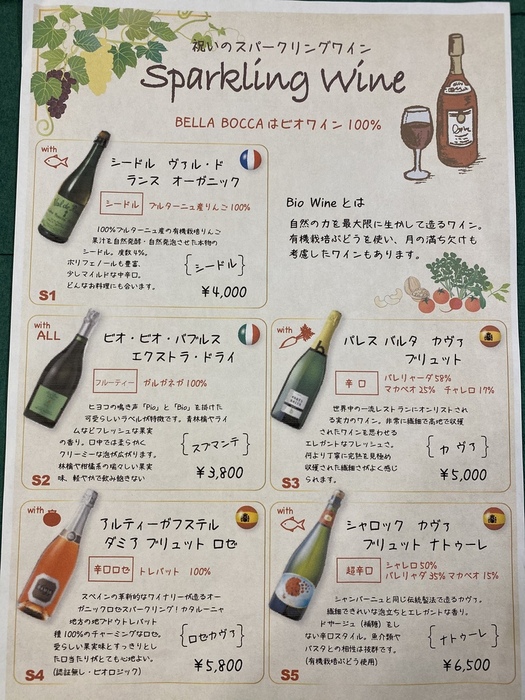 祝いのスパークリングワイン
Sparkling Wine
BELLA BOCCAはビオワイン100%
with
シードル ヴァル・ド
ランス オーガニック
シードル ブルターニュ産りんご100%
100%ブルターニュ産の有機栽培りんご
果汁を自然発酵・自然発泡させた本物の
シードル。度数4%。
ポリフェノールも豊富、
少しマイルドな中辛口。
どんなお料理にも合います。
{シードル}
¥4,000
S1
Bio Wine とは
自然の力を最大限に生かして造るワイン。
有機栽培ぶどうを使い、月の満ち欠けも
考慮したワインもあります。
with
ALL
ビオ・ビオ・バブルス
エクストラ・ドライ
フルーティー ガルガネガ100%
ヒヨコの鳴き声「Pio」と「Bio」を掛けた
可愛らしいラベルが特徴です。青林檎やライ
ムなどフレッシュな果実
の香り。口中では柔らかく
クリーミーな泡が広がります。
林檎や柑橘系の瑞々しい果実
味、軽やかで飲み飽きない
{スプマンテ}
¥3,800
S2
with
パレス バルタ カヴァ
ブリュット
辛口 パレリャーダ58%
マカベオ25% チャレロ17%
世界中の一流レストランにオンリストされ
る実力のワイン。非常に標高で収穫
されたワインを思わせる
エレガントなフレッシュさ。
何より丁寧に完熟を見極め
収穫された繊細さがよく感じ
られます。
{カヴァ}
¥5,000
S3
with
アルティーガフステル
ダミア ブリュット ロゼ
辛口ロゼ トレパット 100%
スペインの革新的なワイナリーが造るオー
ガニックロゼスパークリング!カタルーニャ
地方の地ブドウトレパット
種100%のチャーミングなロゼ。
愛らしい果実味とすっきりとし
た口当たりがとても心地よい。
(認証無し・ビオロジック)
{ロゼカヴァ}
¥5,800
S4
with
シャロック カヴァ
ブリュット ナトゥーレ
超辛口 シャレロ50%
パレリャダ35% マカベオ15%
シャンパーニュと同じ伝統製法で造るカヴァ。
繊細できれいな泡立ちとエレガントな香り。
ドサージュ(補糖)をし
ない辛口スタイル。魚介類や
パスタとの相性は抜群です。
(有機栽培ぶどう使用)
{ナトゥーレ}
¥6,500
S5